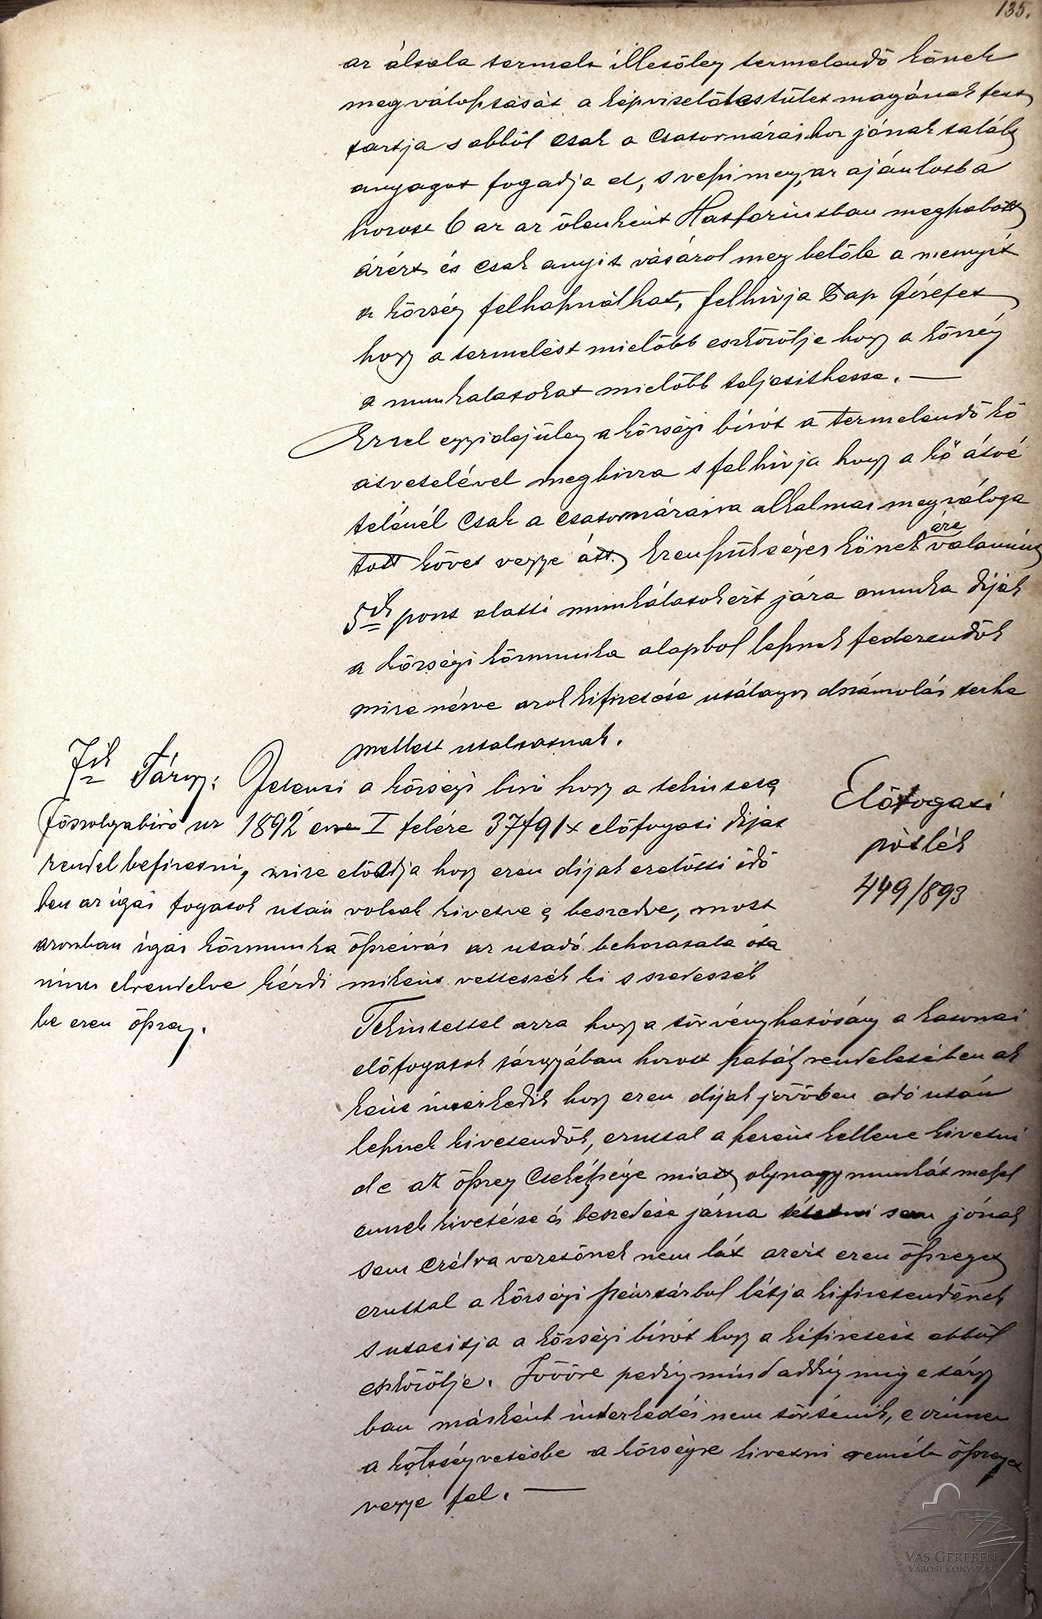 135.
az általa termelt illetőleg termelendő kőnek
megválasztását a képviselőtestület magának fent
tartja s abból csak a csatornázáshoz jónak talált
anyagot fogadja el, s veszi meg, az ajánlatba
hozott 6 az az ölenként Hatforintban megszabott
árért és csak anyit vásárol meg belőle a menyit
a község felhasználhat, felhívja Pap Józsefet
hogy a termelést mielőbb eszközölje hogy a község
a munkalatokat mielőbb teljesithesse. —
Ezzel egyidejűleg a községi bírót a termelendő kő
átvetelével megbizza s felhívja hogy a kő átvé
telénél csak a csatornázásra alkalmas megváloga
tott követ vegye átt. Ezen szükséges kőnek ára valamint
5ik pont alatti munkálatokért jára munka díjak
a községi közmunka alapbol lesznek fedezendők
mire nézve azok kifizetése utólagos elszámolás terhe
mellett utaltatnak.
7ik Tárgy: Jelenti a községi biró hogy a tekintetes
főszolgabiró ur 1892 évre I felére 37f 91x előfogati díjat
rendel befizetni, mire előadja hogy ezen díjak ezelőtti idő
ben az igás fogatok után voltak kivetve és beszedve, most
azonban igás közmunka összeirás az utadó behozatala óta
nincs elrendelve kérdi miként vettessék ki s szedessék
be ezen összeg.
Előfogati
pótlék
449/893
Tekintettel arra hogy a törvényhatóság a katonai
előfogatok tárgyában hozott szabályrendeletében ak
ként intézkedik hogy ezen díjak jövőben adó után
lesznek kivetendők, ezuttal a szerint kellene kivetni
de az összeg csekélysége miatt oly nagy munkát mellyel
ennek kivetése és beszedése járna sem jónak
sem czélra vezetőnek nem lát azért ezen összeget
ezuttal a községi pénztárbol látja kifizetendőnek
s utasitja a községi bírót hogy a kifizetést ebből
eszközölje. Jövőre pedig mind addig mig e tárgy
ban másként intézkedés nem történik, e czimen
a költségvetésbe a községre kivetni remélt összeget
vegye fel. —
VAS GEREBEN
VÁROSI KÖNYVTÁR